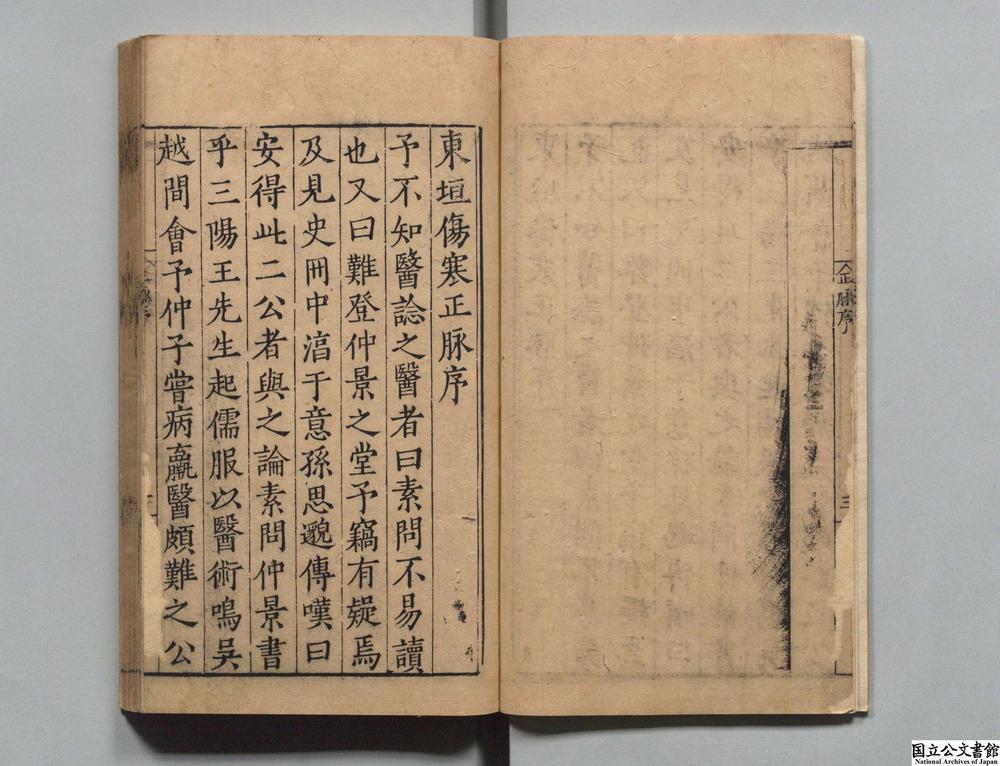 東垣傷寒正脉序
予不知醫諗之醫者曰素問不易讀
也又曰難登仲景之堂予竊有疑焉
及見史冊中淳于意孫思邈傳嘆曰
安得此二公者與之論素問仲景書
乎三陽王先生起儒服以醫術鳴吳
越間會予仲子嘗病羸醫頗難之公
脉序
国立公文書館
National Archives of Japan